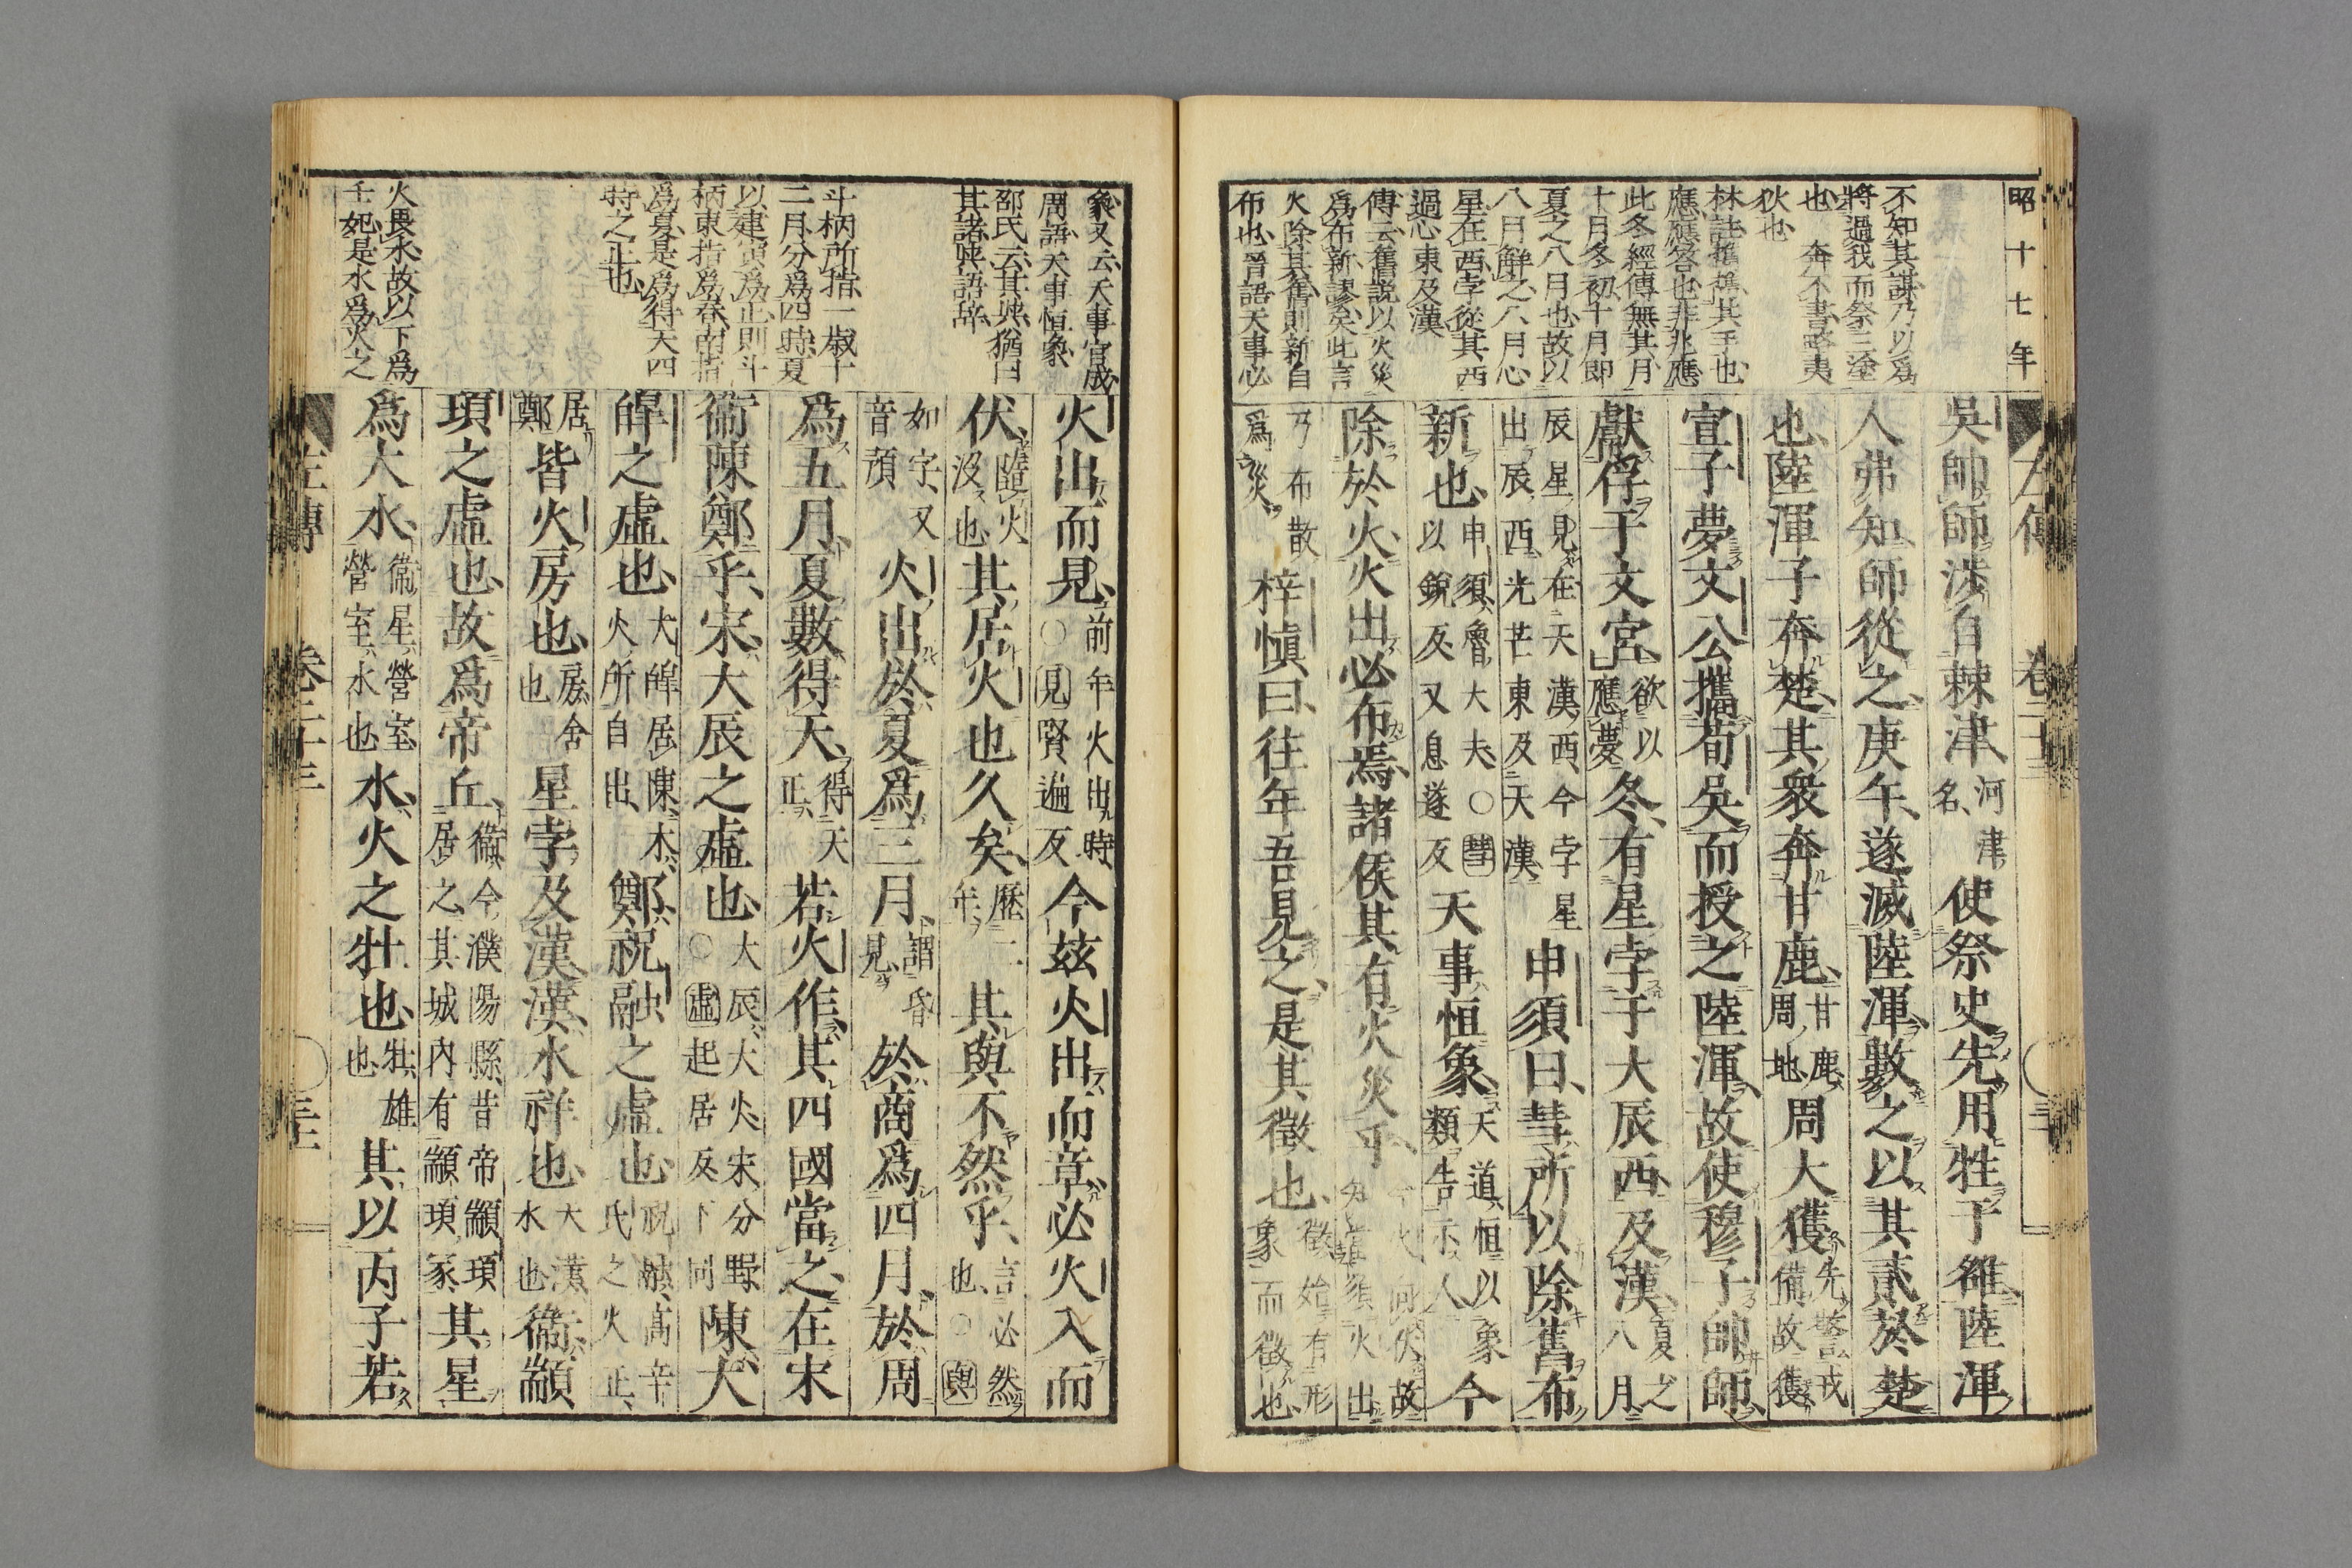 昭十七年
不知其謀乃以爲
將過我而祭三塗
也 奔不書略夷
狄也
林註攜攜其手也
應應答也非兆應
此冬經傳無其月
十月冬初十月即
夏之八月也故以
八月解之八月心
星在西孛從其西
過心東及漢
傳云舊説以火災
爲布新謬矣此言
火除其舊則新自
布也晉語天事必
吳帥師涉自棘津河津名使祭史先用牲于雒陸渾
人弗知師從之庚午遂滅陸渾數之以其貳於楚
也陸渾子奔楚其衆奔甘鹿甘鹿周地周大獲先警戒備故獲
宣子夢文公攜荀吳而授之陸渾故使穆子帥師
獻俘于文宮欲以應夢冬有星孛于大辰西及漢夏之八月
辰星見在天漢西今孛星出辰西光芒東及天漢申須曰彗所以除舊布
新也申須魯大夫○彗以銳反又息遂反天事恒象天道恒以象類告示人今
除於火火出必布焉諸侯其有火災乎今火向伏故知當須火出
乃布散爲災梓愼曰往年吾見之是其徵也徵始有形象而微也
象又云天事官成
周語天事恒象
邵氏云其與猶曰
其諸與語辞
斗柄所指一歲十
二月分爲四時夏
以建寅爲正則斗
柄東指爲春南指
爲夏是爲得天四
時之正也
火畏水故以下爲
壬妃是水爲火之
火出而見前年火出時○見賢遍反今玆火出而章必火入而
伏隨火没也其居火也久矣歷二年其與不然乎言必然也○與
如字又音預火出於夏爲三月謂昏見於商爲四月於周
爲五月夏數得天得天正若火作其四國當之在宋
衞陳鄭乎宋大辰之虛也大辰大火宋分野○虛起居反下同陳大
皥之虛也大皥居陳木火所自出鄭祝融之虛也祝融高辛氏之火正
居鄭皆火房也房舍也星孛及漢漢水祥也天漢水也衞顓
頊之虛也故爲帝丘衞今濮陽縣昔帝顓頊居之其城内有顓頊冢其星
爲大水衞星營室營室水也水火之牡也牡雄也其以丙子若
左傳 卷二十三